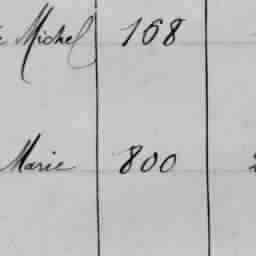 Michel 168
Marie 800